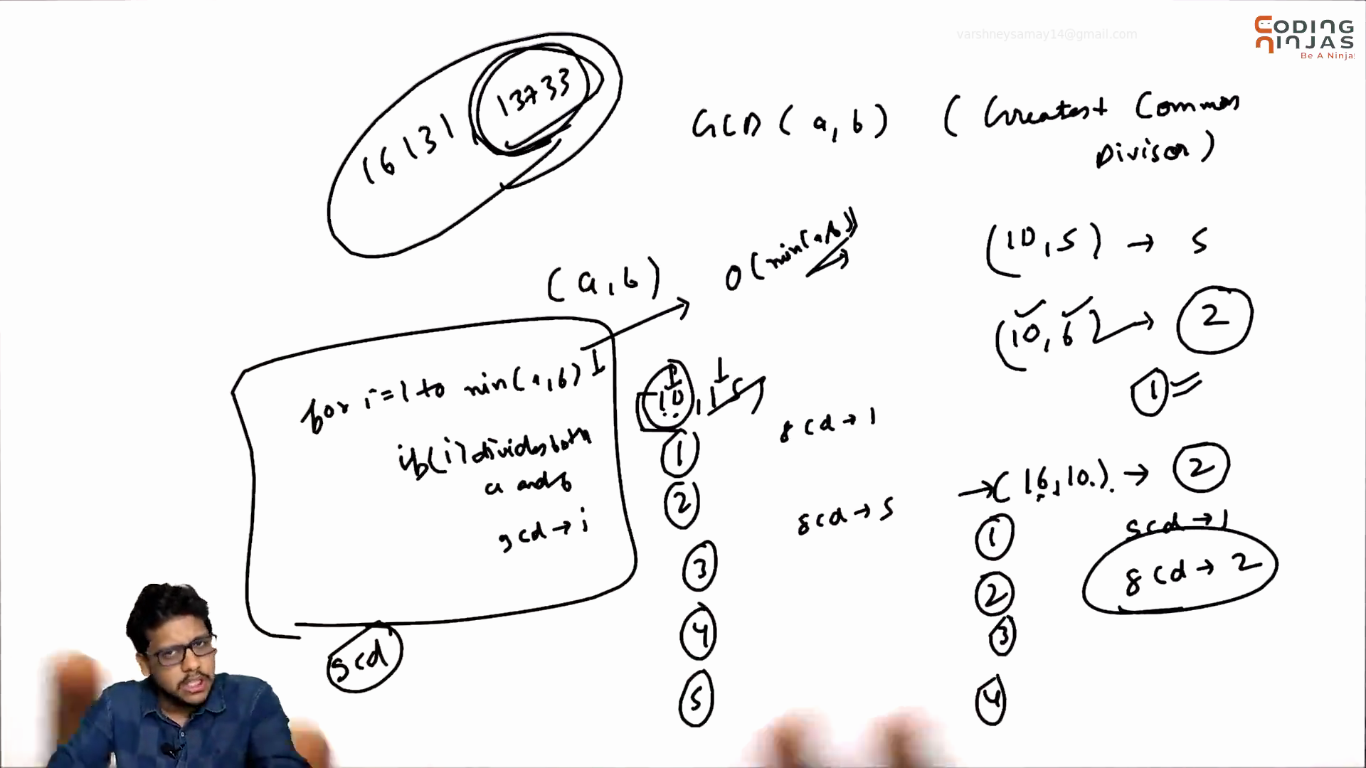 varshneysamay14@gmail.com
CODING
NINJAS
Be A Ninja
16131, 13733
GCD (a, b) (Greatest Common
Divisor)
(10, 5) → 5
(a, b)
O(min(a,b))
(10, 6) → 2
1
for i=1 to min(a,b)
if(i) divides both
a and b
gcd → i
gcd
10, 15
1
2
3
4
5
gcd → 1
gcd → 5
→ (16, 10) → 2
1
2
3
4
gcd → 1
gcd → 2